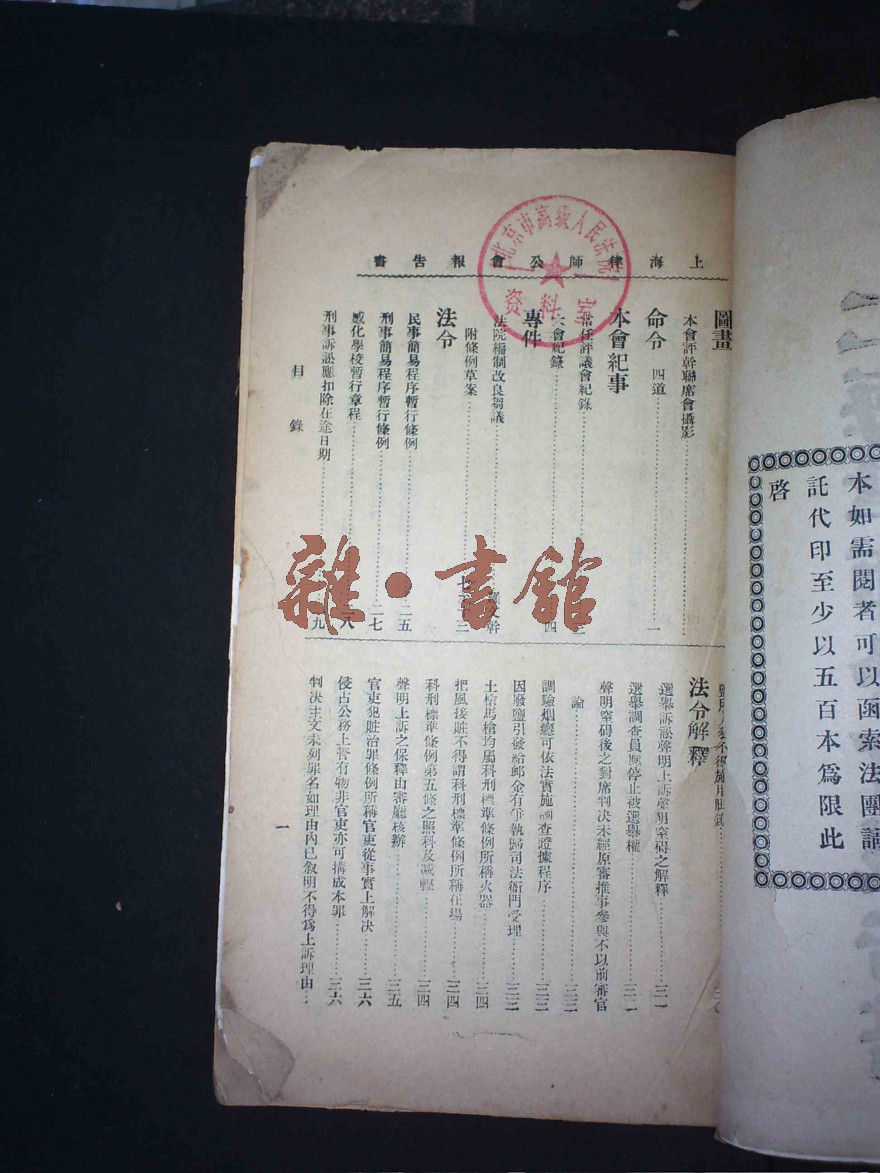 上海律師公會報告書
北京市高級人民法院
資料室
圖畫
本會評幹聯席會攝影
命令 四道 一
本會紀事
常任評議會紀錄
會紀錄 四
專件
法院編制改良芻議
附條例草案
法令
民事簡易程序暫行條例 二五
刑事簡易程序暫行條例 二七
感化學校暫行章程 八
刑事訴訟應扣除在途日期 九
目錄
法令解釋
選舉訴訟聲明上訴聲明窒碍之解釋 三一
選舉調查員應停止被選舉權
聲明窒碍後之對席判決未經原審推事參與不以前審官
論
調驗烟癮可依法實施調查證據程序
因廢鹽引發給郵金有爭執歸司法衙門受理
土槍馬槍均屬科刑標準條例所稱火器 三四
把風接贓不得謂科刑標準條例所稱在場 三四
科刑標準條例第五條之照科及減輕 三四
聲明上訴之保釋由審廳核辦 三五
官吏犯贓治罪條例所稱官吏從事實上解決 三六
侵占公務上管有物非官吏亦可構成本罪 三六
判决主文未列罪名如理由內已敘明不得爲上訴理由
一
雜·書館
本如需閱者可以函索法團
託代印至少以五百本爲限此
啓